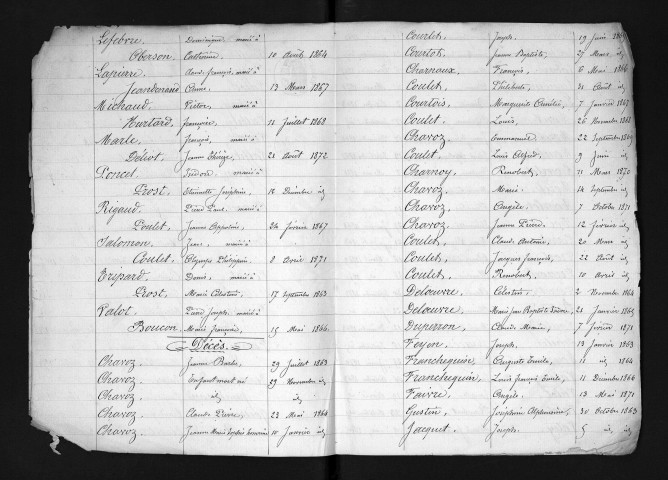 Lefebvre. Dominique marié à
Oberson. Catherine 10 Août 1864
Lapierre. Claude François, marié à
Jeandenand Anne. 13 Mars 1867
Michaud. Victor, marié à
Huttard. Françoise. 11 Juillet 1868
Marle. François, marié à
Déliot. Jeanne Thérèse 21 Août 1872
Poncet. Isidore, marié à
Prost. Etiennette Joséphine, 12 Décembre id
Rigaud. Pierre Paul, marié à
Poulet. Jeanne Appoline 24 février 1867
Salomon. Jean, marié à
Coulet. Olympe Philippine 8 Avril 1871
Trépard. Denis, marié à
Prost. Marie Célestine 17 Septembre 1863
Valot. Pierre Joseph, marié à
Boucon. Marie françoise, 15 Mai 1866
Décès.
Chavoz Jeanne Barbe, 29 Juillet 1863
Chavoz Enfant mort né 29 Novembre id
Chavoz id id
Chavoz Claude Pierre 22 Mai 1864
Chavoz. Jeanne Marie 10 Janvier id
Courlet. Joseph. 19 Juin
Courtot. Jeanne Baptiste, 27 Mars id
Charnaux. François, 6 Mai 1866
Coulet. Philibert, 31 Août id
Courtois. Marguerite Emilie, 7 Janvier 1867
Coulet. Louis, 26 Novembre 1868
Chavoz. Emmanuel 22 Septembre 1869
Coulet. Louis Alfred, 9 Juin id
Charnoy. Renobert, 11 Mars 1870
Chavoz. Marie. 14 Septembre id
Chavoz. Angèle, 7 Octobre 1871
Chavoz. Jeanne Pierre 12 février id
Coulet. Claude Antoine, 20 Mars id
Coulet. Jacques François, 22 Août id
Coulet. Renobert, 10 Avril id
Delouvre. Célestin. 2 Novembre 1864
Delouvre. Marie Jean Baptiste 21 Janvier 1865
Duperron. Claude Marie, 7 février 1871
Feyon. Joseph. 13 Janvier 1863
Franchequin. Auguste Emile, 11 id 1864
Franchequin. Louis François Emile, 11 Décembre 1866
Faivre. Angèle. 13 Mai 1871
Gustin. Joséphine Alphonsine, 30 Octobre 1863
Jacquet. Joseph. 5 id id